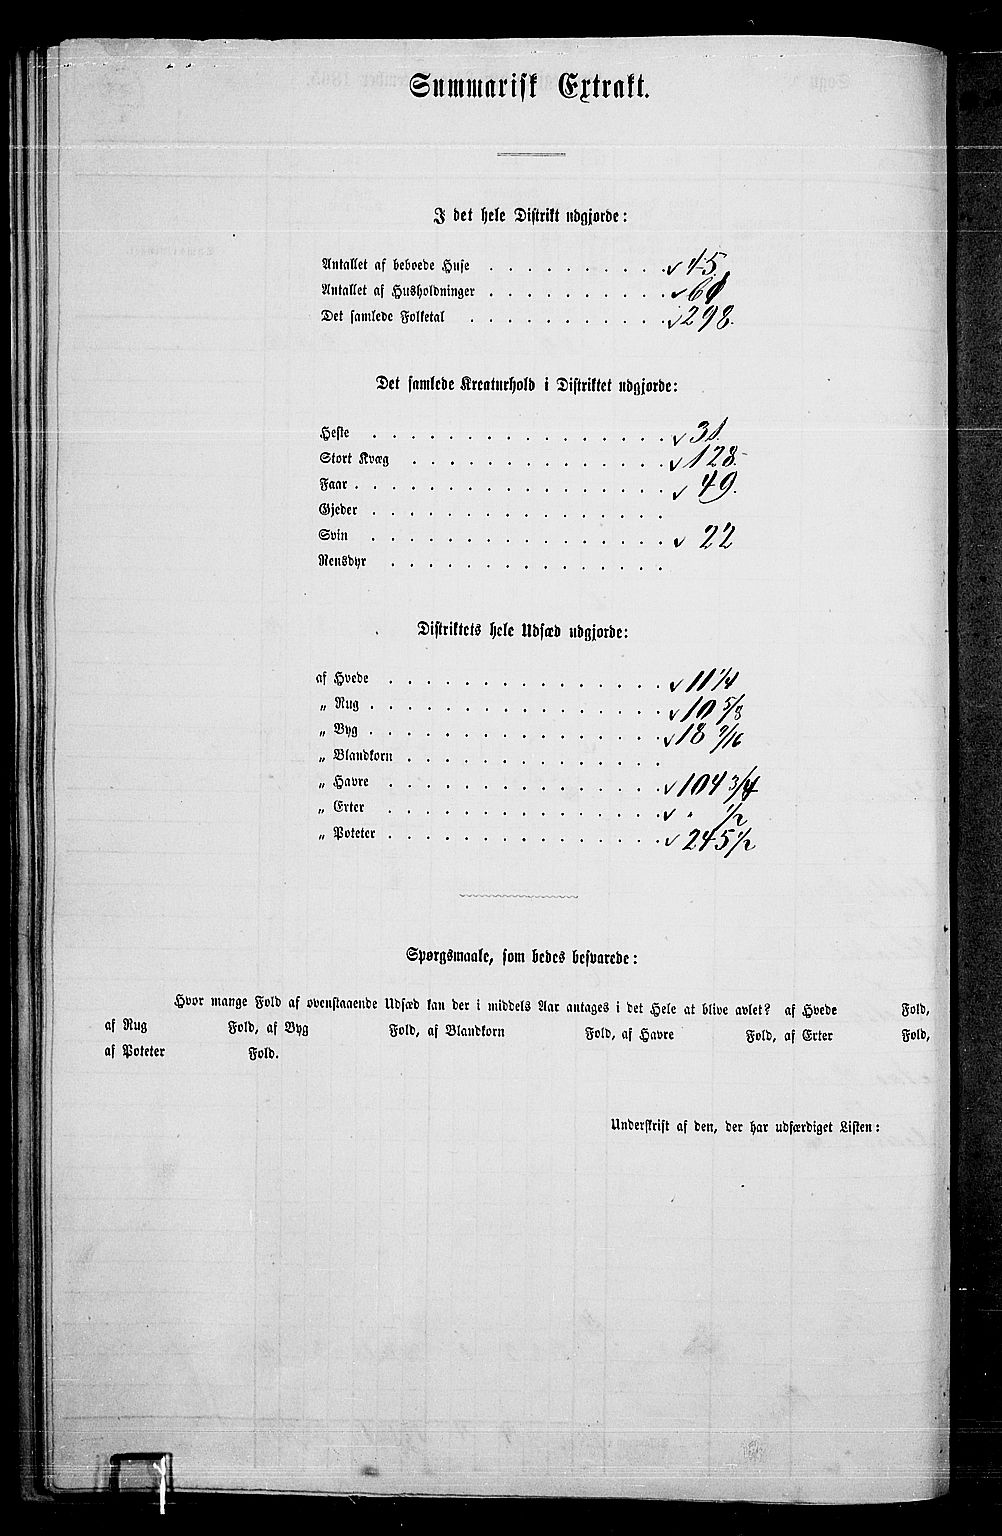 Summarisk Extrakt.
I det hele Distrikt udgjorde:
Antallet af beboede Huse . . . . . . . . . . 45.
Antallet af Husholdninger . . . . . . . . . .
Det samlede Folketal . . . . . . . . . . . 298.
Det samlede Kreaturhold i Distriktet udgjorde:
Heste . . . . . . . . . . . . . . . . 31.
Stort Kvæg . . . . . . . . . . . . . . 128.
Faar . . . . . . . . . . . . . . . . . 49.
Gjeder . . . . . . . . . . . . . . . .
Svin . . . . . . . . . . . . . . . . 22
Rensdyr . . . . . . . . . . . . . . .
Distriktets hele Udsæd udgjorde:
af Hvede . . . . . . . . . . . . . . . 11 1/4
„ Rug . . . . . . . . . . . . . . . . 10 5/8
„ Byg . . . . . . . . . . . . . . . . 18 9/16
„ Blandkorn . . . . . . . . . . . . . .
„ Havre . . . . . . . . . . . . . . . 104 3/4
„ Erter . . . . . . . . . . . . . . . „ 1/2
„ Poteter . . . . . . . . . . . . . . . 245 1/2
Spørgsmaale, som bedes besvarede:
Hvor mange Fold af ovenstaaende Udsæd kan der i middels Aar antages i det Hele at blive avlet? af Hvede Fold,
af Rug Fold, af Byg Fold, af Blandkorn Fold, af Havre Fold, af Erter Fold,
af Poteter Fold.
Underskrift af den, der har udfærdiget Listen: